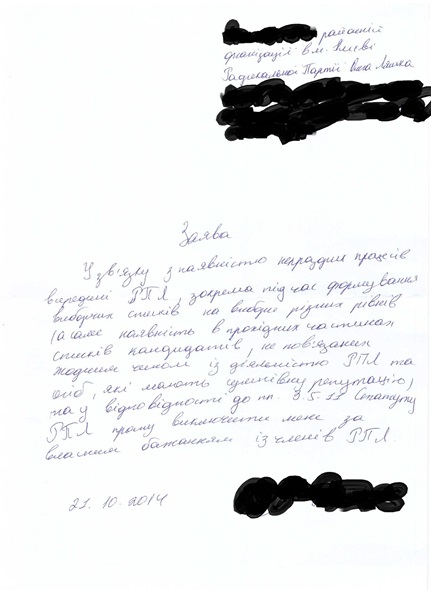 районній
організації в м. Києві
Радикальної Партії Олега Ляшка
Заява
У зв'язку з наявністю непрозорих процесів
всередині РПЛ, зокрема під час формування
виборчих списків на вибори різних рівнів
(а саме наявність в прохідних частинах
списків кандидатів, не пов'язаних
жодним чином із діяльністю РПЛ та
осіб, які мають сумнівну репутацію)
та у відповідності до пп. 3.5. Статуту
РПЛ прошу виключити мене за
власним бажанням із членів РПЛ.
21.10.2014